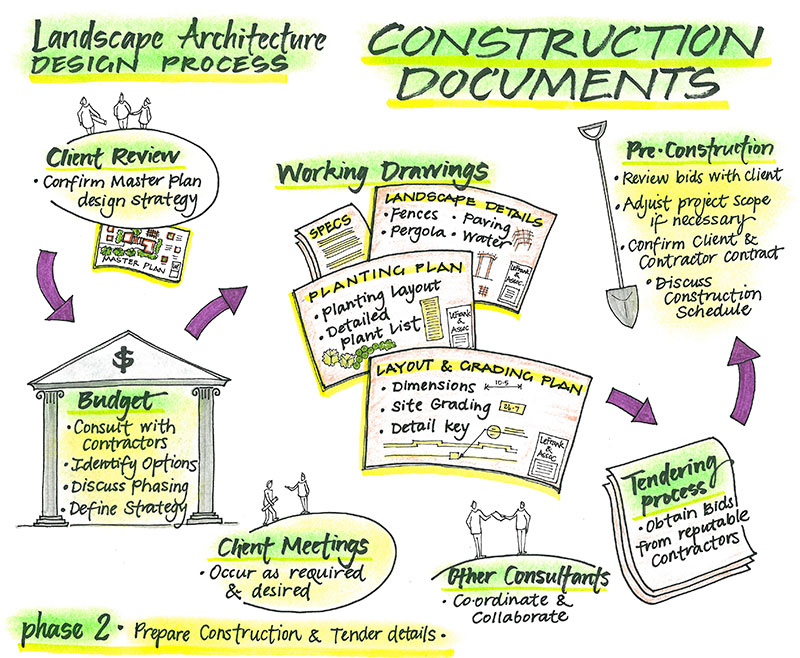 Landscape Architecture
DESIGN PROCESS
CONSTRUCTION
DOCUMENTS
Client Review
• Confirm Master Plan
design strategy
MASTER PLAN
Budget
$
• Consult with
Contractors
• Identify Options
• Discuss Phasing
• Define Strategy
Working Drawings
SPECS
LANDSCAPE DETAILS
• Fences • Paving
• Pergola • Water
LeFrank
& Assoc.
PLANTING PLAN
• Planting Layout
• Detailed
Plant List
LeFrank
& Assoc
LAYOUT & GRADING PLAN
• Dimensions
10.5
• Site Grading
26.7
• Detail Key
LeFrank
& Assoc
Client Meetings
• Occur as required
& desired
Other Consultants
• Co-ordinate &
Collaborate
Tendering
Process
• Obtain Bids
from reputable
Contractors
Pre-Construction
• Review bids with client
• Adjust project scope
if necessary
• Confirm Client &
Contractor Contract
• Discuss
Construction
Schedule
phase 2 • Prepare Construction & Tender details •